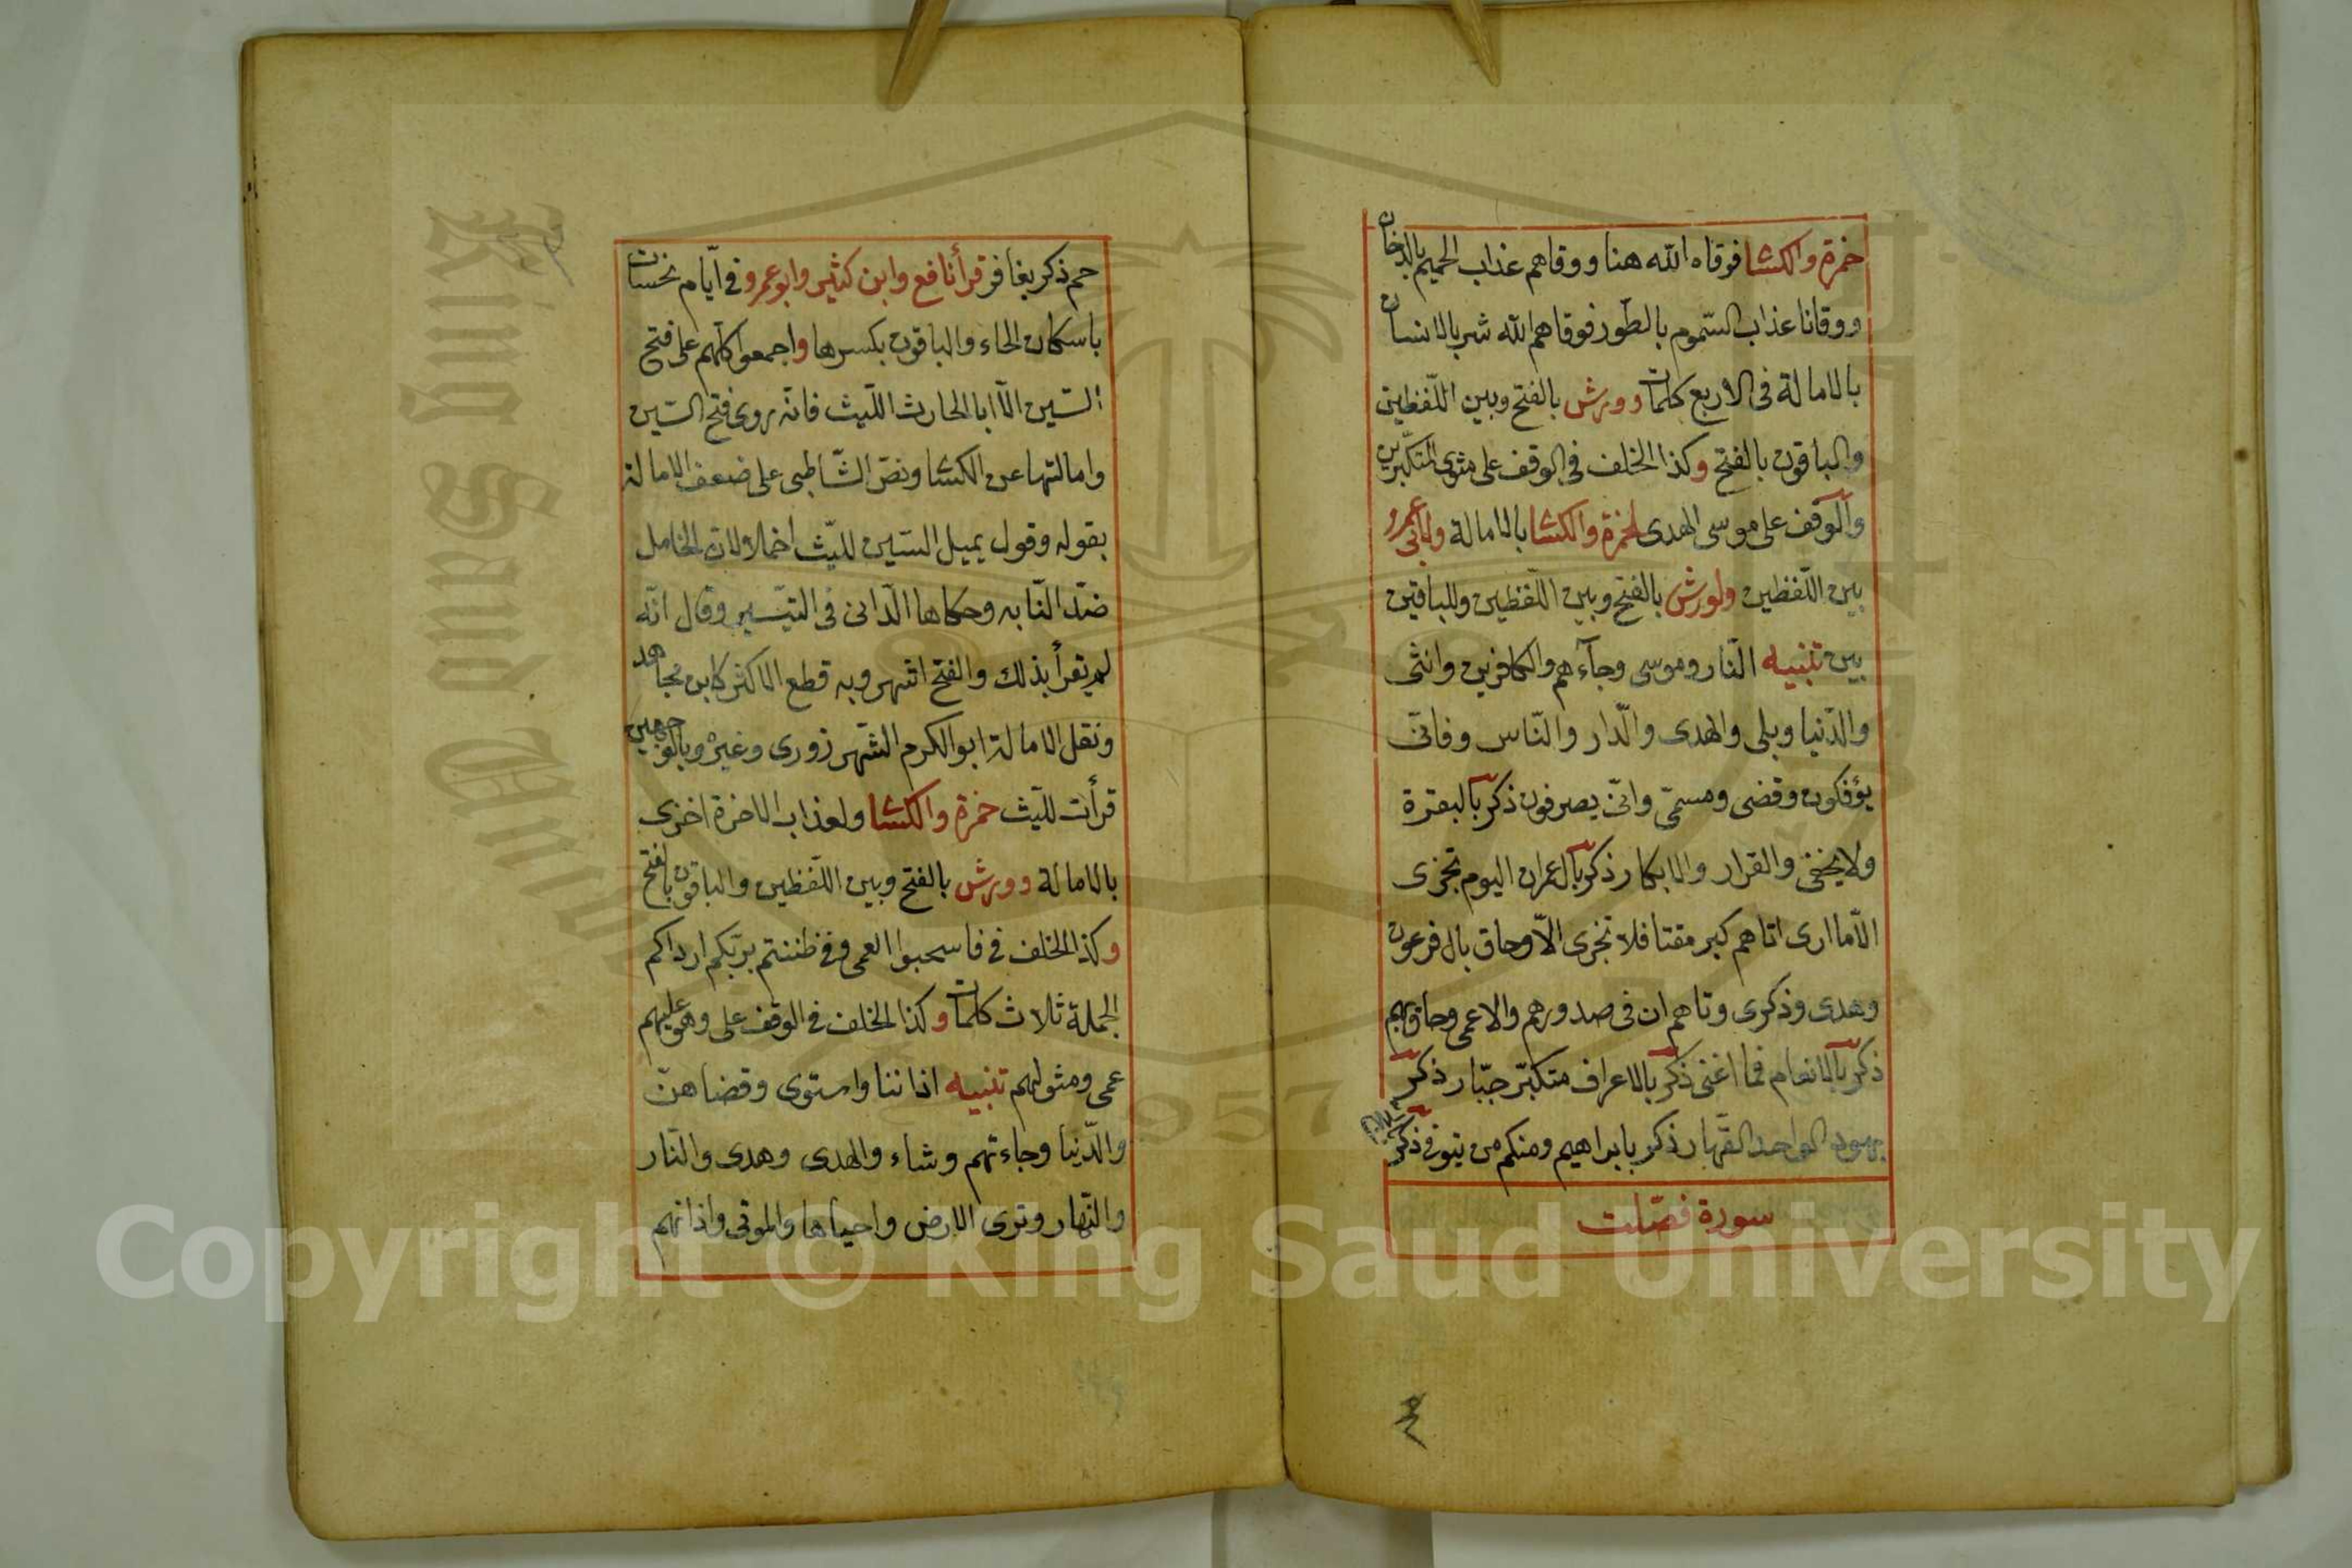 حمزة والكسا فوقاه الله هنا ووقاهم عذاب الجحيم بالدخان
ووقانا عذاب السّموم بالطّور فوقاهم الله شر بالانسان
بالامالة فى الاربع كلمات وورش بالفتح وبين اللّفظين
والباقون بالفتح وكذا الخلف فى الوقف على مثوى المتكبّرين
والوقف على موسى الهدى لحمزة والكسا بالامالة ولابى عمرو
بين اللّفظين ولورش بالفتح وبين اللّفظين وللباقين
بين تنبيه النّار وموسى وجآءهم والكافرين وانثى
والدّنيا وبلى والهدى والدّار والنّاس وفانّى
يؤفكون وقضى ومسمّى وانّى يصرفون ذكر بالبقرة
ولا يخفى والقرار والابكار ذكر بآل عمران اليوم تجزى
الّا ما ارى اتاهم كبر مقتا فلا تجزى الّا وحاق بال فرعون
وهدى وذكرى وتاهم ان فى صدورهم والاعمى وحاق بهم
ذكر بالانعام فما اغنى ذكر بالاعراف متكبّر جبّار ذكر
بهود الواحد القهّار ذكر بابراهيم ومنكم من يتوفى ذكر
سورة فصّلت
حم ذكر بغافر قرأ نافع وابن كثير وابو عمرو فى ايّام نحسات
باسكان الحاء والباقون بكسرها واجمعوا كلّهم على فتح
السّين الّا ابا الحارث اللّيث فانّه روى فتح السّين
وامالتها عن الكسا ونصّ الشّاطبى على ضعف الامالة
بقوله وقول يميل السّين لليّث اخملا ولان الخامل
ضدّ النّابه وحكاها الدّانى فى التيّسير وقال انّه
لم يقرأ بذلك والفتح اشهر وبه قطع الاكثر كابن مجاهد
ونقل الامالة ابو الكرم الشّهرزورى وغيره وبالوجهين
قرأت للّيث حمزة والكسا ولعذاب الاخرة اخزى
بالامالة وورش بالفتح وبين اللّفظين والباقون بالفتح
وكذا الخلف فى فاستحبوا العمى وفى ظننتم بربّكم ارداكم
الجملة ثلاث كلمات وكذا الخلف فى الوقف على وهو عليهم
عمى ومثوى لهم تنبيه اذاننا واستوى وقضاهنّ
والدّنيا وجاءتهم وشاء والهدى وهدى والنّار
والنّهار وترى الارض واحياها والموتى واذانهم
King Saud University
1957
Copyright © King Saud University